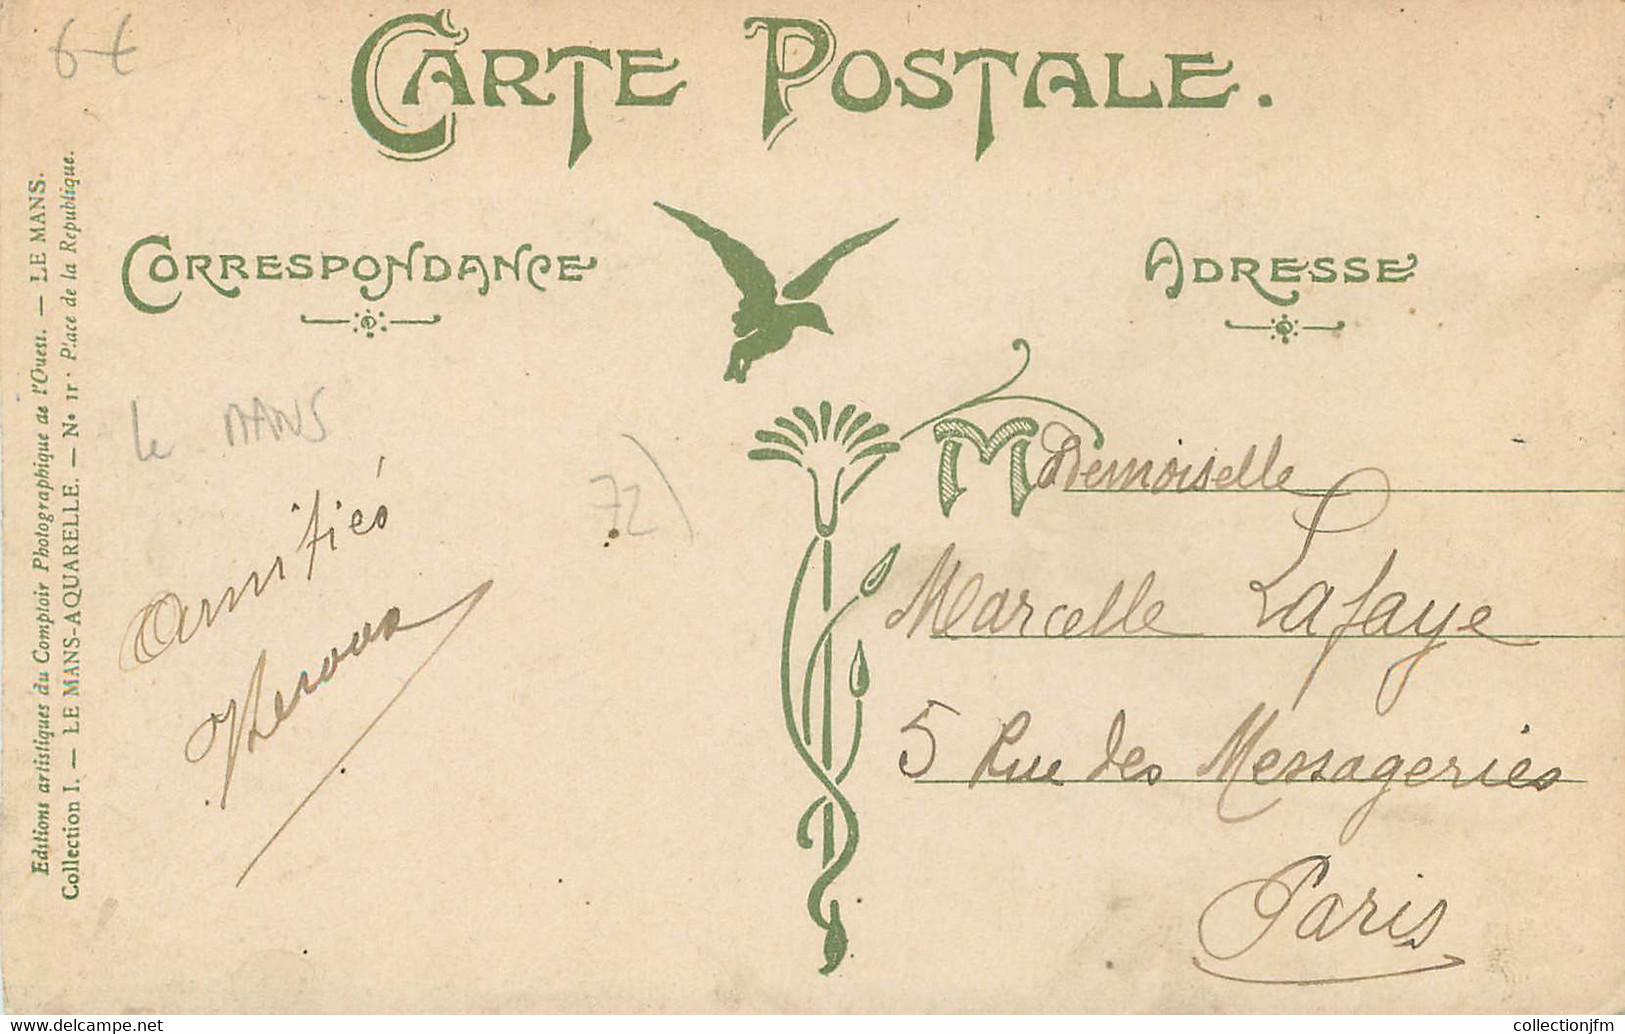 6€
CARTE POSTALE.
CORRESPONDANCE
ADRESSE
Editions artistiques du Comptoir Photographique de l'Ouest. — LE MANS.
Collection I. — LE MANS-AQUARELLE. — No 11. Place de la République.
le MANS
72)
Amitiés
Mademoiselle
Marcelle Lafaye
5 Rue des Messageries
Paris
www.delcampe.net
collectionjfm